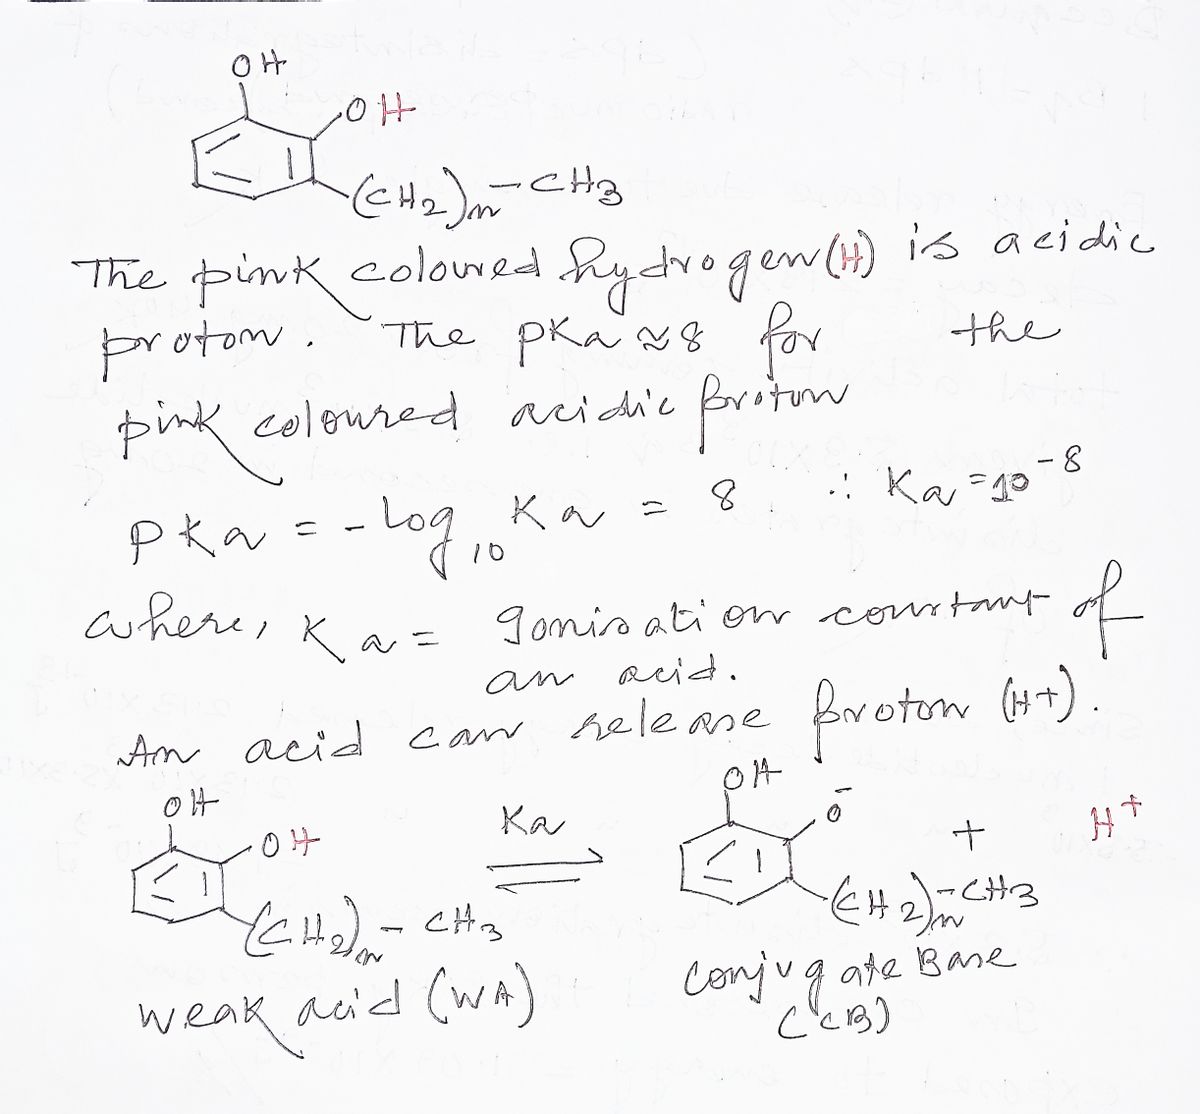 OH
OH
(CH2)n-CH3
The pink coloured hydrogen (H) is acidic
proton. The pKa ≈ 8 for the
pink coloured acidic proton
pKa = -Log10 Ka = 8 ∴ Ka = 10^-8
where, Ka = Ionisation constant of
an acid.
An acid can release proton (H+).
OH
OH
(CH2)n-CH3
Ka
⇌
OH
O-
(CH2)n-CH3
+ H+
weak acid (WA)
Conjugate Base
(CB)